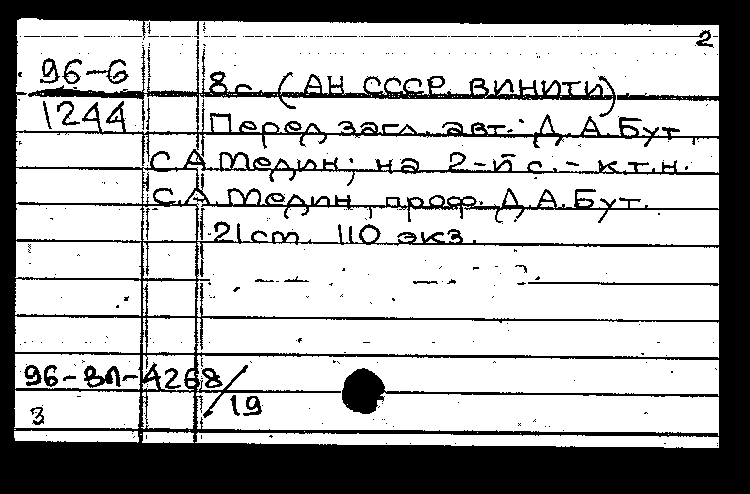 2
96-6
1244
8 с. (АН СССР. ВИНИТИ).
Перед загл. авт.: Д. А. Бут,
С. А. Медин; на 2-й с. - к.т.н.
С. А. Медин, проф. Д. А. Бут.
21 cm. 110 экз.
96-ВЛ-4268/19
3